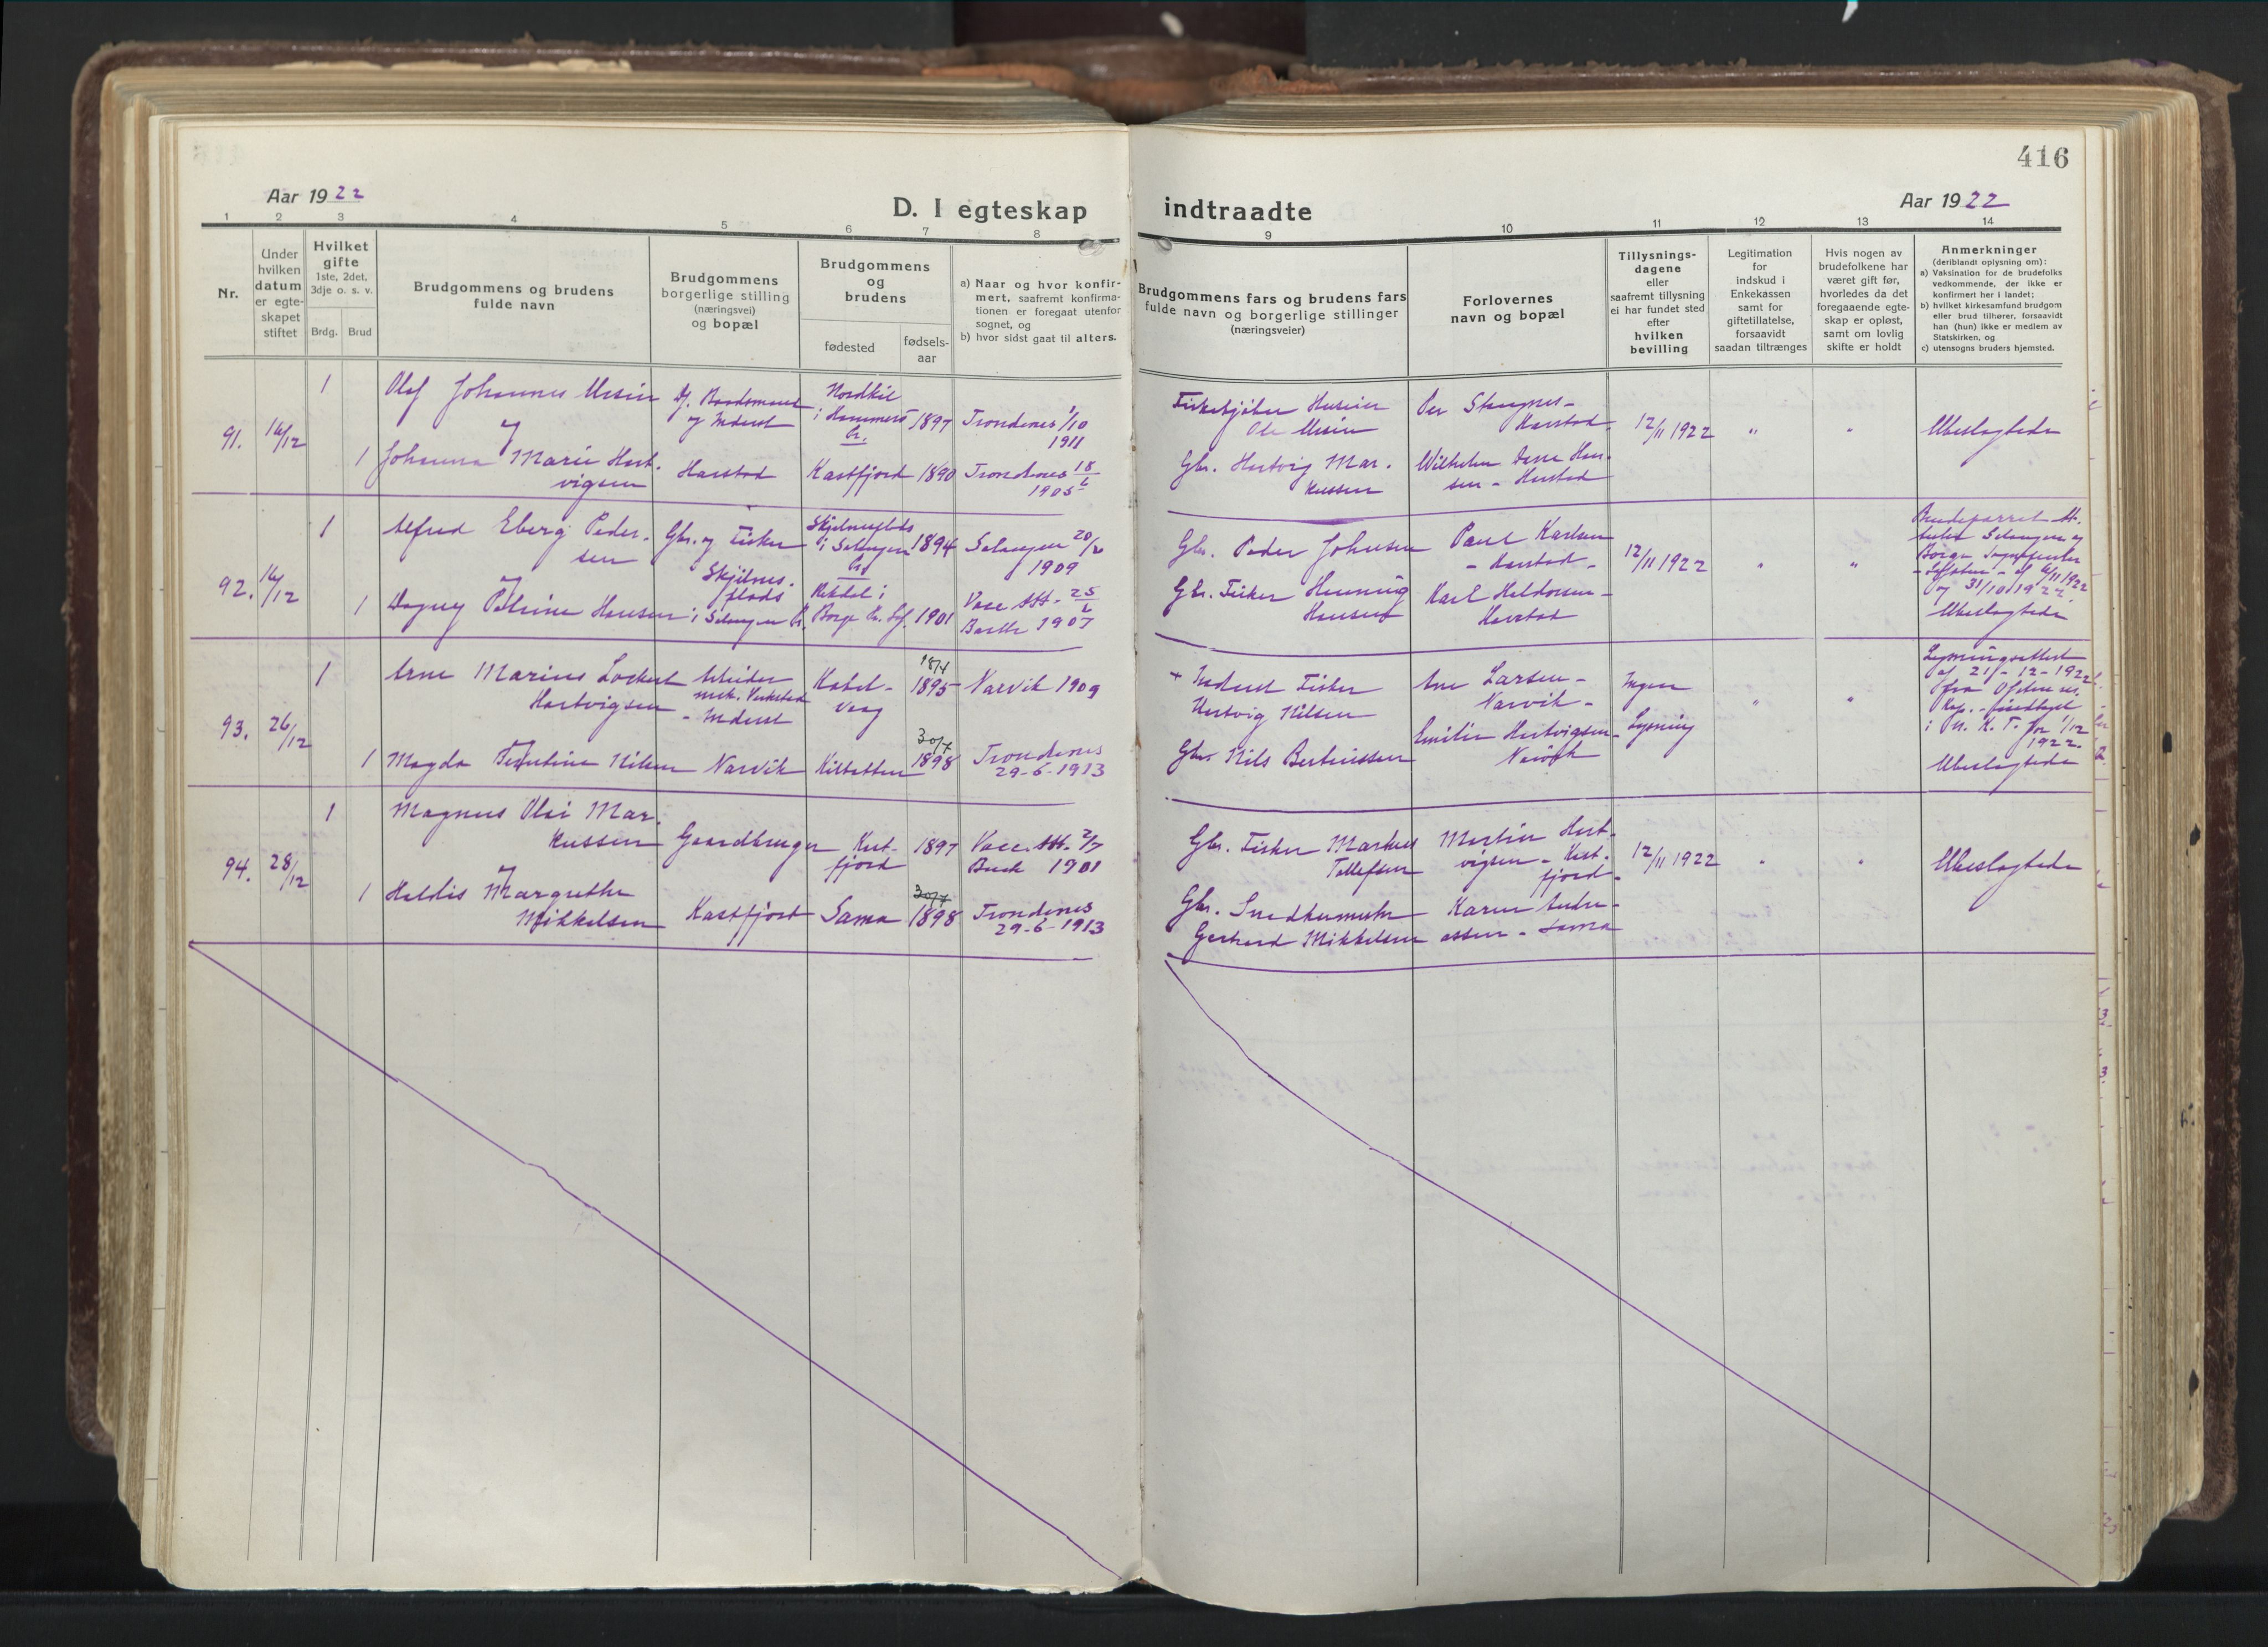 416
Aar 1922
D. I egteskap
indtraadte
Aar 1922
1 2 3 4 5 6 7 8
9 10 11 12 13 14
Nr.
Under hvilken datum er egteskapet stiftet
Hvilket gifte
1ste, 2det, 3dje o. s. v.
Brdg. Brud
Brudgommens og brudens fulde navn
Brudgommens borgerlige stilling (næringsvei) og bopæl
Brudgommens og brudens
fødested
fødsels-aar
a) Naar og hvor konfir-
mert, saafremt konfirma-
tionen er foregaat utenfor
sognet, og
b) hvor sidst gaat til alters.
Brudgommens fars og brudens fars
fulde navn og borgerlige stillinger
(næringsveier)
Forlovernes
navn og bopæl
Tillysnings-
dagene
eller
saafremt tillysning
ei har fundet sted
efter
hvilken
bevilling
Legitimation
for
indskud i
Enkekassen
samt for
giftetillatelse,
forsaavidt
saadan tiltrænges
Hvis nogen av
brudefolkene har
været gift før,
hvorledes da det
foregaaende egte-
skap er opløst,
samt om lovlig
skifte er holdt
Anmerkninger
(deriblandt oplysning om):
a) Vaksination for de brudefolks
vedkommende, der ikke er
konfirmert her i landet;
b) hvilket kirkesamfund brudgom
eller brud tilhører, forsaavidt
han (hun) ikke er medlem av
Statskirken, og
c) utensogns bruders hjemsted.
91. 16/12
1 Olaf Johannes
og Inderst
Nordkil
i Hammerø
1897
Trondenes 1/10
1911
Ole
Per
Harstad
12/11 1922
"
"
Ubeslægtede
og
1 Johanna Marie Hart-
vigsen
Harstad
Kastfjord
1890
Trondenes 18/6
1905
Gbr. Hartvig Mar-
kussen
Wilhelm Han-
sen - Harstad
92. 16/12
1 Alfred Eberg Peder-
sen
Gbr. og Fisker
Skjelnes-
flods
i Salangen
1894
Salangen 20/
1909
Gbr. Peder Johnsen
Paul Karlsen
- Harstad -
12/11 1922
"
"
og
1 Dagny Petrine Hansen
i Salangen
Borge
1901
Vacc. Att. 25/6
1907
Gbr. Fisker Henning
Hansen
Karl Haldorsen -
Harstad
og 31/10 1922
Ubeslægtede
93. 26/12
1 Arne Marius Lockert
Hartvigsen
Arbeider
mek. Verksted
- Inderst
Kabel-
vaag
18/4
1895
Narvik 1909
+ Inderst Fisker
Hartvig Nilsen
Larsen -
Narvik -
Ingen
Lysning
"
"
Lysningsattest
af 21/-12-1922
fra Ofoten
1/12
1922.
Ubeslægtede
1 Magda Nilsen
Narvik
Kilbotten
30/7
1898
Trondenes
29-6-1913
Gbr. Nils Bertinussen
Emilie Hartvigsen -
Narvik
94. 28/12
1 Magnus Olai Mar-
kussen
Gaardbruger
Kast-
fjord
1897
Vacc. Att. 2/7
1901
Gbr. Fisker Markus
Tollefsen
Martin Hart-
vigsen - Kast-
fjord -
12/11 1922
"
"
Ubeslægtede
og
1 Haldis Margrethe
Mikkelsen
Kastfjord
Sama
30/7
1898
Trondenes
29-6-1913
Gbr. Snedkermester
Gerhard Mikkelsen
Karen Andre-
assen - Sama